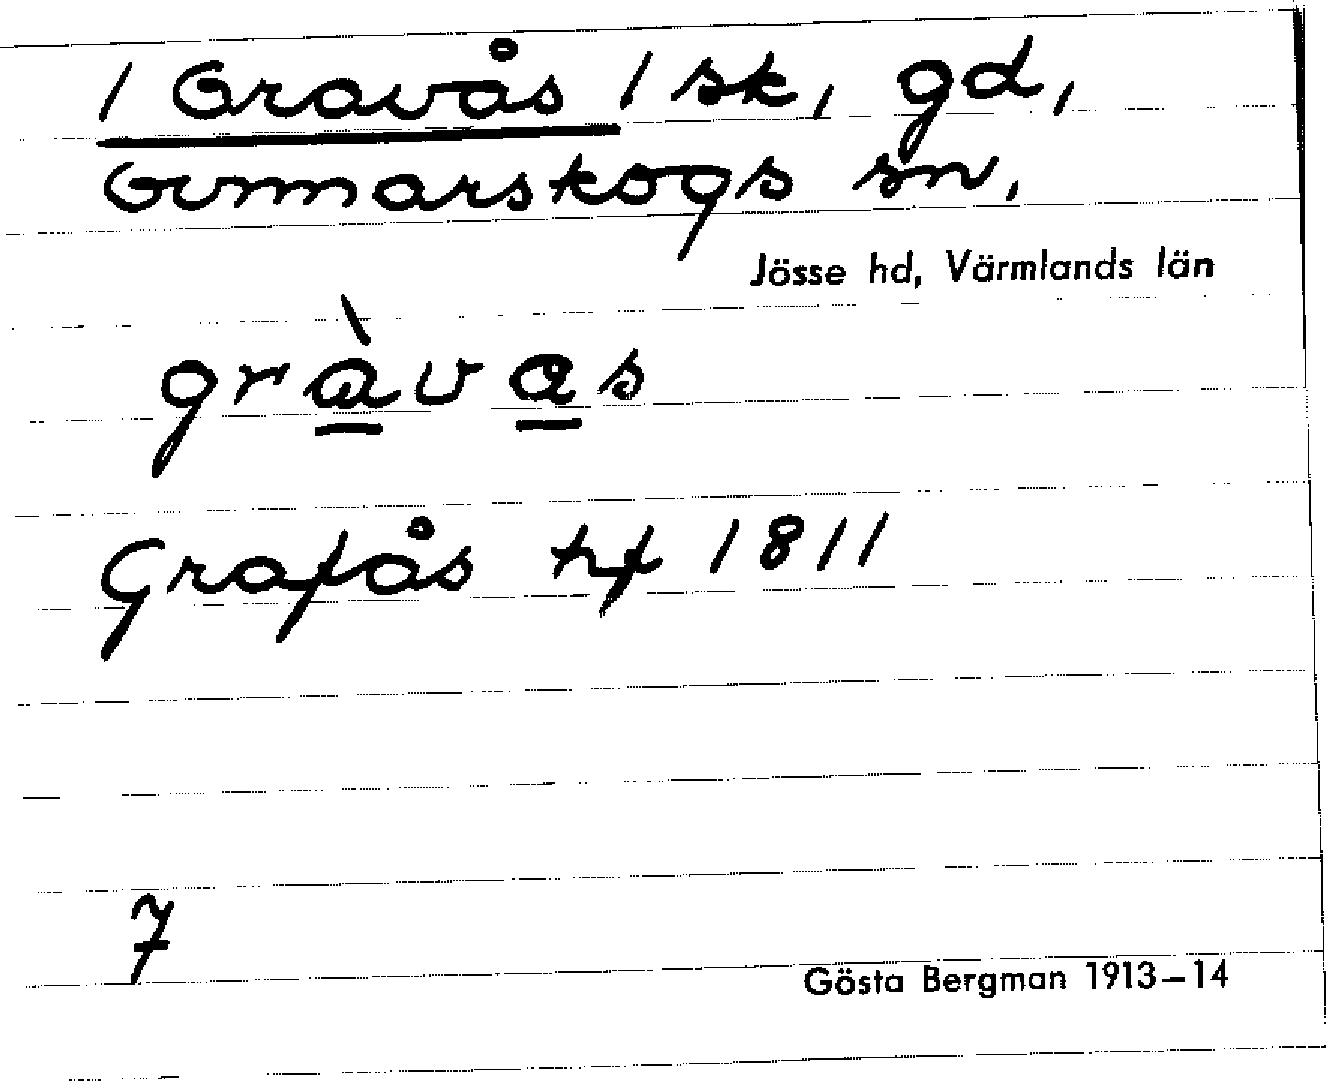 / Gravås / sk, gd,
Gunnarskogs sn,
Jösse hd, Värmlands län
gràvas
Grafås hf 1811
7
Gösta Bergman 1913–14